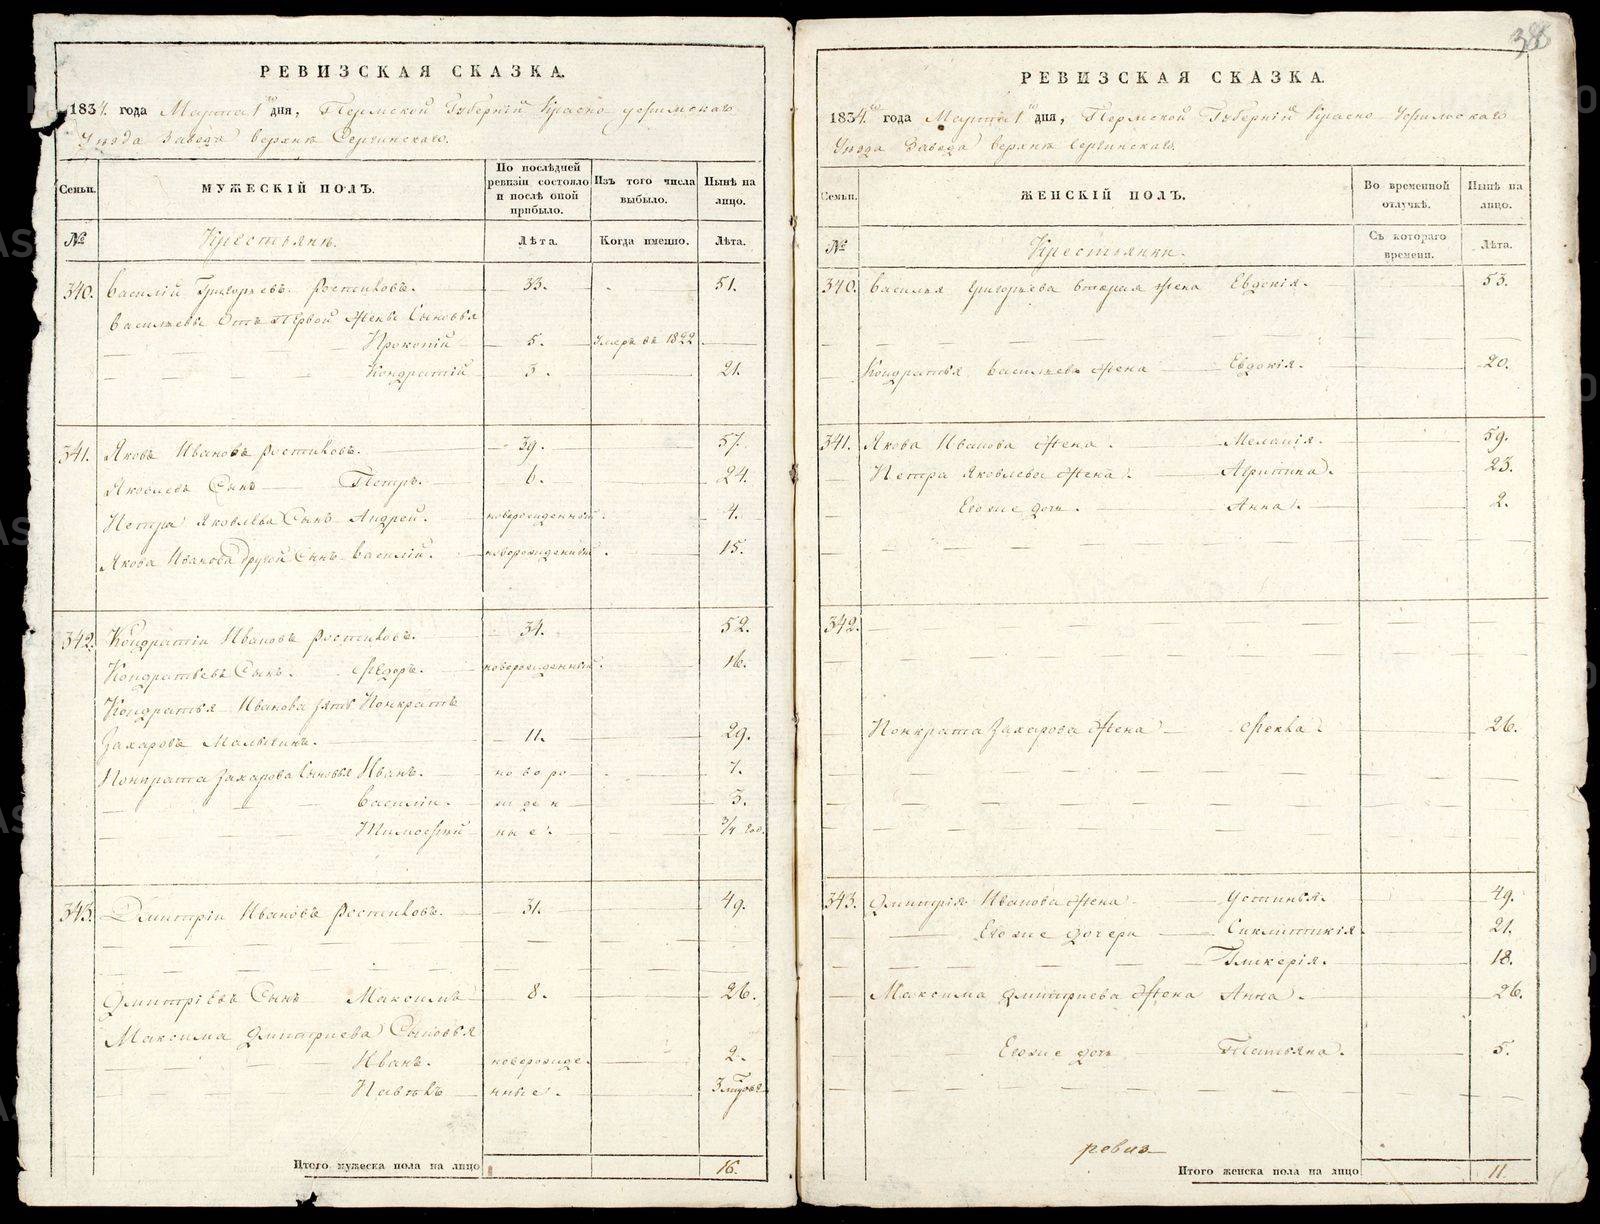 38
РЕВИЗСКАЯ СКАЗКА.
1834. года Марта 1 го дня, Пермской Губерніи Красно уфимскаго
Уезда Завода верхнѣ Сергинскаго.
Семьи.
МУЖЕСКІЙ ПОЛЪ.
По послѣдней ревизіи состояло и послѣ оной прибыло.
Изъ того числа выбыло.
Нынѣ на лицо.
№
Крестьянѣ.
Лѣта.
Когда именно.
Лѣта.
340. Василій Григорьевъ Ростиковъ. 33. 51.
Васильевы Отъ Первой Жены Сыновья
Прокопій 5. Умеръ въ 1822
Кондратій 3. 21.
341. Яковъ Ивановъ Ростиковъ. 39. 57.
Яковлевъ Сынъ Петръ. 6. 24.
Петра Яковлева Сынъ Андрей. новорожденный. 4.
Якова Иванова Другой Сынъ Василій. новорожденный. 15.
342. Кондратіи Ивановъ Ростиковъ. 34. 52.
Кондратьевъ Сынъ. Федоръ. новорожденный. 16.
Кондратья Иванова зять Понкратъ
Захаровъ 11. 29.
Понкрата Захарова Сыновья Иванъ. новоро 7.
Василіи. жден 5.
Тимофей ные. 3/4 год.
343. Дмитріи Ивановъ Ростиковъ. 31. 49.
Дмитріевъ Сынъ Максимъ 8. 26.
Максима Дмитриева Сыновья
Иванъ. новорожде 2.
Павелъ нные.
Итого мужеска пола на лицо 16.
РЕВИЗСКАЯ СКАЗКА.
1834. го года Марта 1 го дня, Пермской Губерніи Красно Уфимскаго
Уезда Завода верхнѣ Сергинскаго.
Семьи.
ЖЕНСКІЙ ПОЛЪ.
Во временной отлучкѣ.
Нынѣ на лицо.
№
Крестьянки.
Съ котораго времени.
Лѣта.
340. Василья Григорьева вторая жена Евдокія. 53.
Кондратья Васильева жена Евдокія. 20.
341. Якова Иванова жена. Меланія. 59.
Петра Яковлева жена. Агрипина. 23.
Егоже дочь. Анна. 2.
342.
Понкрата Захарова жена Фекла. 26.
343. Дмитрія Иванова жена Устинья. 49.
Егоже дочери Сиклитикія. 21.
Гликерія. 18.
Максима Дмитриева жена Анна. 26.
Егоже дочь Татьяна. 5.
ревиз
Итого женска пола на лицо 11.